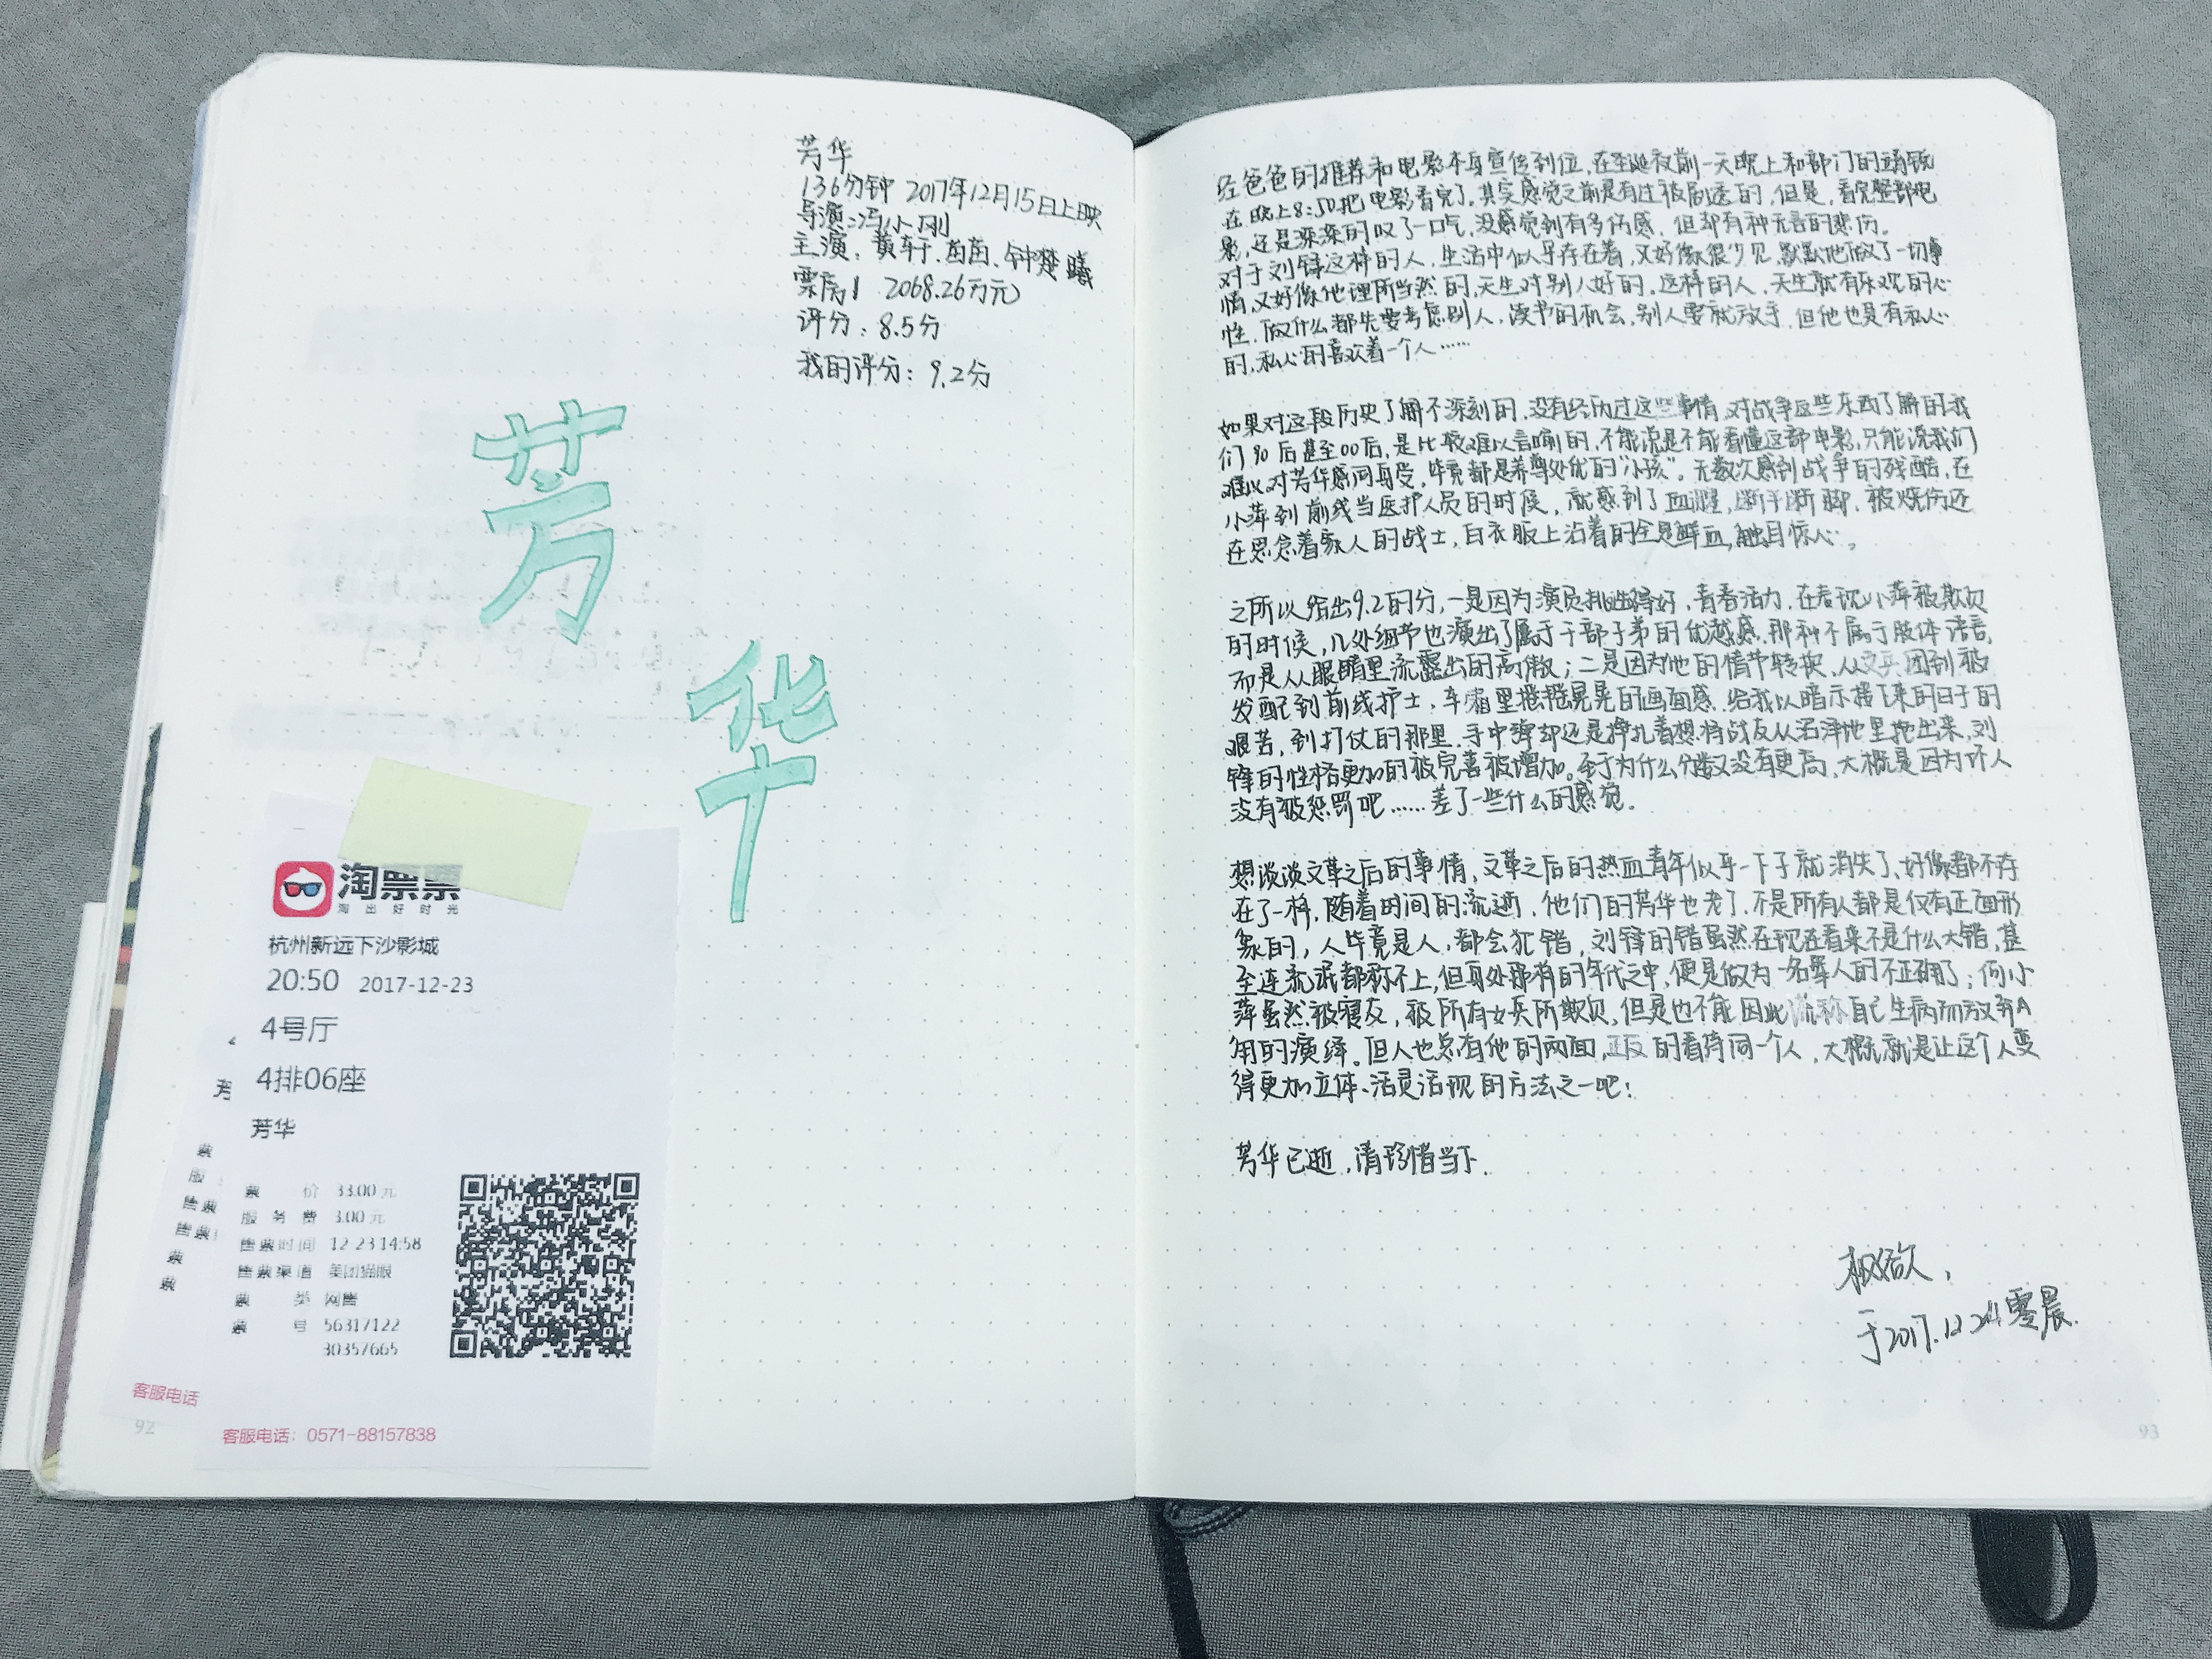 芳华
136分钟 2017年12月15日上映
导演:冯小刚
主演:黄轩.苗苗.钟楚曦
票房: 2068.26万元
评分:8.5分
我的评分:9.2分
芳
华
淘票票
淘出好时光
杭州新远下沙影城
20:50 2017-12-23
4号厅
4排06座
芳华
票价 33.00元
服务费 3.00元
售票时间 12-23 14:58
售票渠道 美团猫眼
票类 网售
票号 56317122
30357665
客服电话:0571-88157838
客服电话
92
经爸爸的推荐和电影本身宣传到位,在圣诞夜前一天晚上和部门的
在晚上8:50把电影看完了,其实感觉之前是有过被剧透的,但是,看完整部电
影,还是深深的叹了一口气,没感觉到有多伤感,但却有种无言的悲伤。
对于刘锋这样的人,生活中似乎存在着,又好像很少见,默默地做了一切事
情,又好像他理所当然的,天生对别人好的,这样的人,天生就有乐观的心
性,做什么都先要考虑别人,读书的机会,别人要就放手,但他也是有私心
的,私心的喜欢着一个人……
如果对这段历史了解不深刻的,没有经历过这些事情,对战争这些东西了解的我
们90后甚至00后,是比较难以言喻的,不能说是不能看懂这部电影,只能说我们
难以对芳华感同身受,毕竟都是养尊处优的“小孩”。无数次感到战争的残酷,在
小萍到前线当医护人员的时候,就感到了血腥,断手断脚,被烧伤还
在思念着家人的战士,白衣服上沾着的全是鲜血,触目惊心。
之所以给出9.2的分,一是因为演员挑选得好,青春活力,在表现小萍被欺负
的时候,几处细节也演出了属于干部子弟的优越感,那种不属于肢体语言,
而是从眼睛里流露出的高傲;二是因为他的情节转换,从文工团到被
发配到前线护士,车厢里摇摇晃晃的画面感,给我以暗示接下来的日子的
艰苦,到打仗的那里,手中弹却还是挣扎着想将战友从沼泽地里拖出来,刘
锋的性格更加的被完善被增加。至于为什么分数又没有更高,大概是因为坏人
没有被惩罚吧……差了一些什么的感觉。
想谈谈文革之后的事情,文革之后的热血青年似乎一下子就消失了,好像都不存
在了一样,随着时间的流逝,他们的芳华也老了,不是所有人都是仅有正面形
象的,人毕竟是人,都会犯错,刘锋的错虽然在现在看来不是什么大错,甚
至连流氓都称不上,但身处那样的年代之中,便是做为一名军人的不正确了;何小
萍虽然被寝友,被所有女兵所欺负,但是也不能因此谎称自己生病而放弃A
角的演绎。但人也总有他的两面,正反的看待同一个人,大概就是让这个人变
得更加立体、活灵活现的方法之一吧!
芳华已逝,请珍惜当下.
于2017.12.24零晨.
93